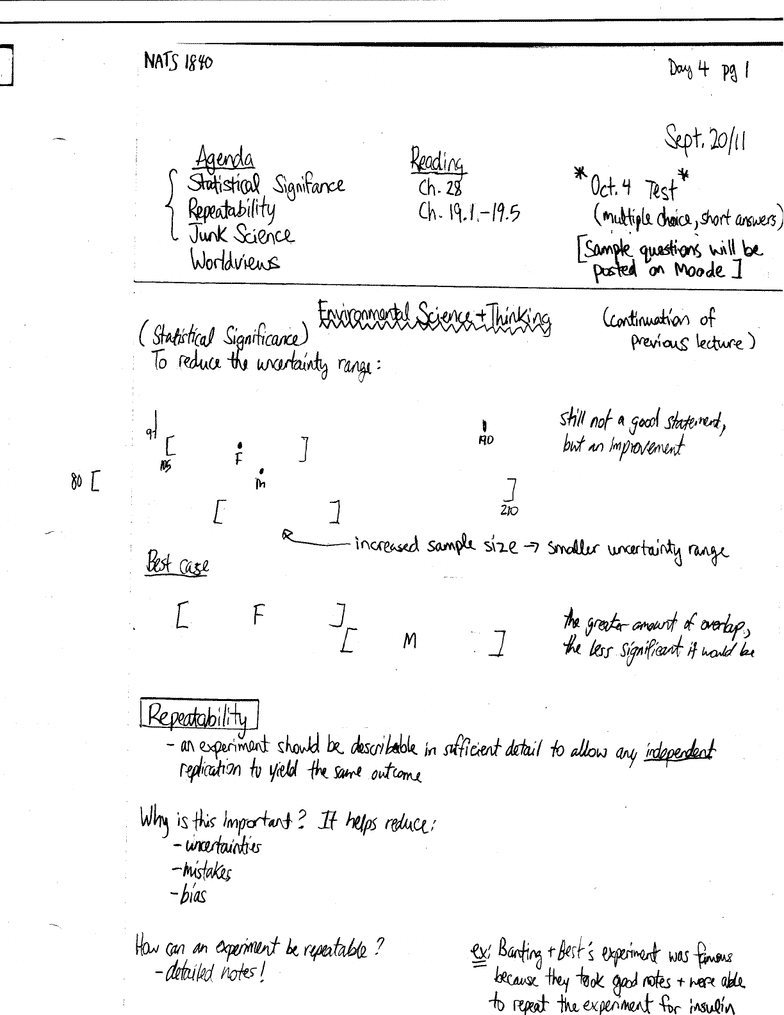 NATS 1840
Day 4 pg 1
Sept. 20/11
Agenda
Statistical Signifance
Repeatability
Junk Science
Worldviews
Reading
Ch. 28
Ch. 19.1.-19.5
* Oct. 4 Test *
(multiple choice, short answers)
[Sample questions will be
posted on Moode]
Environmental Science + Thinking
(continuation of
previous lecture)
(Statistical Significance)
To reduce the uncertainty range:
still not a good statement,
but an improvement
[ F ]
80 [
M
[ ]
]
210
increased sample size → smaller uncertainty range
Best case
[ F ]
[ M ]
the greater amount of overlap,
the less significant it would be
Repeatability
- an experiment should be describable in sufficient detail to allow any independent
replication to yield the same outcome
Why is this important? It helps reduce:
- uncertainties
- mistakes
- bias
How can an experiment be repeatable?
- detailed notes!
ex: Banting + Best's experiment was famous
because they took good notes + were able
to repeat the experiment for insulin